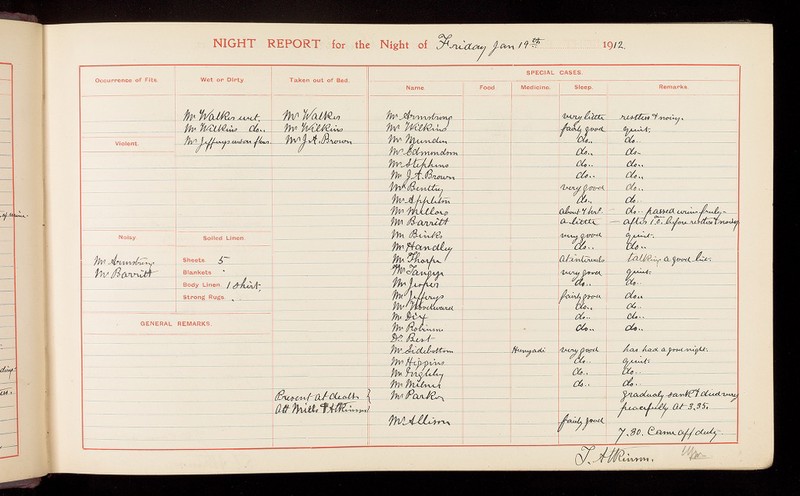 NIGHT REPORT for the Night of Friday Jan 19th 1912.
SPECIAL CASES.
Occurrence of Fits. Wet or Dirty Taken out of Bed. Name. Food Medicine. Sleep. Remarks.
Mr Walker wet. Mr Walker Mr Armstrong very little restless & noisy.
Mr Wilkins do.. Mr Wilkins Mr Wilkins fairly good quiet.
Violent. Mr Jefferys Mr J.A. Brown Mr Munden do.. do..
Mr Edmondson do.. do..
Mr Stephens do.. do..
Mr J.A. Brown do.. do..
Mr Bentley very good do..
Mr Appleton do.. do..
Mr Mellors about 4 hrs. do.. passed urine freely.
Mr Barritt a little after before restless & noisy
Noisy. Soiled Linen. Mr Binks very good quiet.
Mr Handley do.. do..
Mr Armstrong Sheets. 5 Mr Thorpe at intervals talking a good bit.
Mr Barritt Blankets Mr very good quiet.
Body Linen. 1 Shirt. Mr do.. do..
Strong Rugs. Mr Jefferys fairly good do..
Mr Woodward do.. do..
GENERAL REMARKS. Mr Dix do.. do..
Mr Robinson do.. do..
Dr Best
Mr Sidebottom Hunyadi very good has had a good night.
Mr Higgins do.. quiet.
Mr Inghley do.. do..
Mr Milnes do.. do..
Present at death Mr Parker gradually sank & died very
Att Mills & Atkinson peacefully at 3.35.
Mr Allison fairly good
7.30. Came off duty.
J. Atkinson.